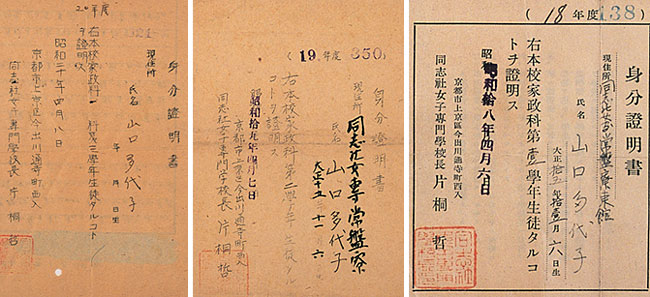 20年度
身分證明書
現住所
氏名 山口多代子
年 月 日生
右本校家政科第三學年生徒タルコト
ヲ證明ス
昭和二十年四月八日
京都市上京区今出川通寺町西入
同志社女子專門學校長 片桐哲
(19年度 350)
身分證明書
現住所 同志社女專常盤寮
氏名 山口多代子
大正十五 十一 六
右本校家政科第二學年生徒タル
コトヲ證明ス
昭和拾九年四月七日
京都市上京区今出川通寺町西入
同志社女子專門学校長 片桐哲
(18年度 138)
身分證明書
現住所 同志社女專常盤寮東館
氏名 山口多代子
大正拾五年拾壹月六日生
右本校家政科第壹學年生徒タルコ
トヲ證明ス
昭和拾八年四月六日
京都市上京區今出川通寺町西入
同志社女子專門學校長 片桐 哲